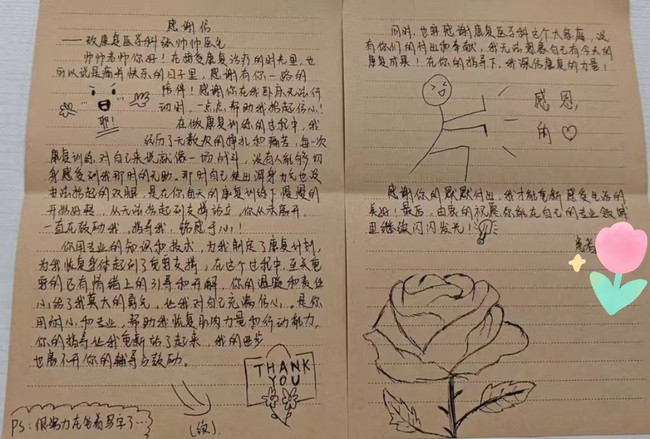 感谢信
——致康复医学科张帅帅医生
帅帅老师你好！在接受康复治疗的时光里，也
可以说是痛并快乐的日子里，感谢有你一路的
陪伴！感谢你在我卧床无法行
动时，一点点帮助我拾起信心！
在做康复训练的过程中，我
耶!!
经历了无数次的挣扎和痛苦，每一次
康复训练对自己来说就像一场战斗，没有人能够切
身感受到我那时的无助。那时自己使出浑身力气也没
法抬起的双腿，是在你每天的康复训练下慢慢的
开始好转，从无法抬起到支撑站立，你从未离开
一直在鼓励我，指导我，铭感于心！
你用专业的知识和技术，为我制定了康复计划，
为我恢复身体起到了重要支撑，在这个过程中，至关重
要的还有情绪上的引导和开解，你的温暖和责任
心给了我莫大的勇气，让我对自己充满信心。是你
用耐心和专业，帮助我恢复肌肉力量和行动能力。
你的指导让我重新站了起来，我的进步
也离不开你的辅导与鼓励。
THANK
YOU
PS：很努力在坐着写字了…
(续)
同时，也要感谢康复医学科这个大家庭，没
有你们的付出和奉献，我无法想象自己有今天的
康复成果！在你的指导下，我深信康复的力量！
感恩
的♡
感谢你的默默付出，我才能重新感受生活的
美好！最后，由衷的祝愿你能在自己的专业领域
里继续闪闪发光！